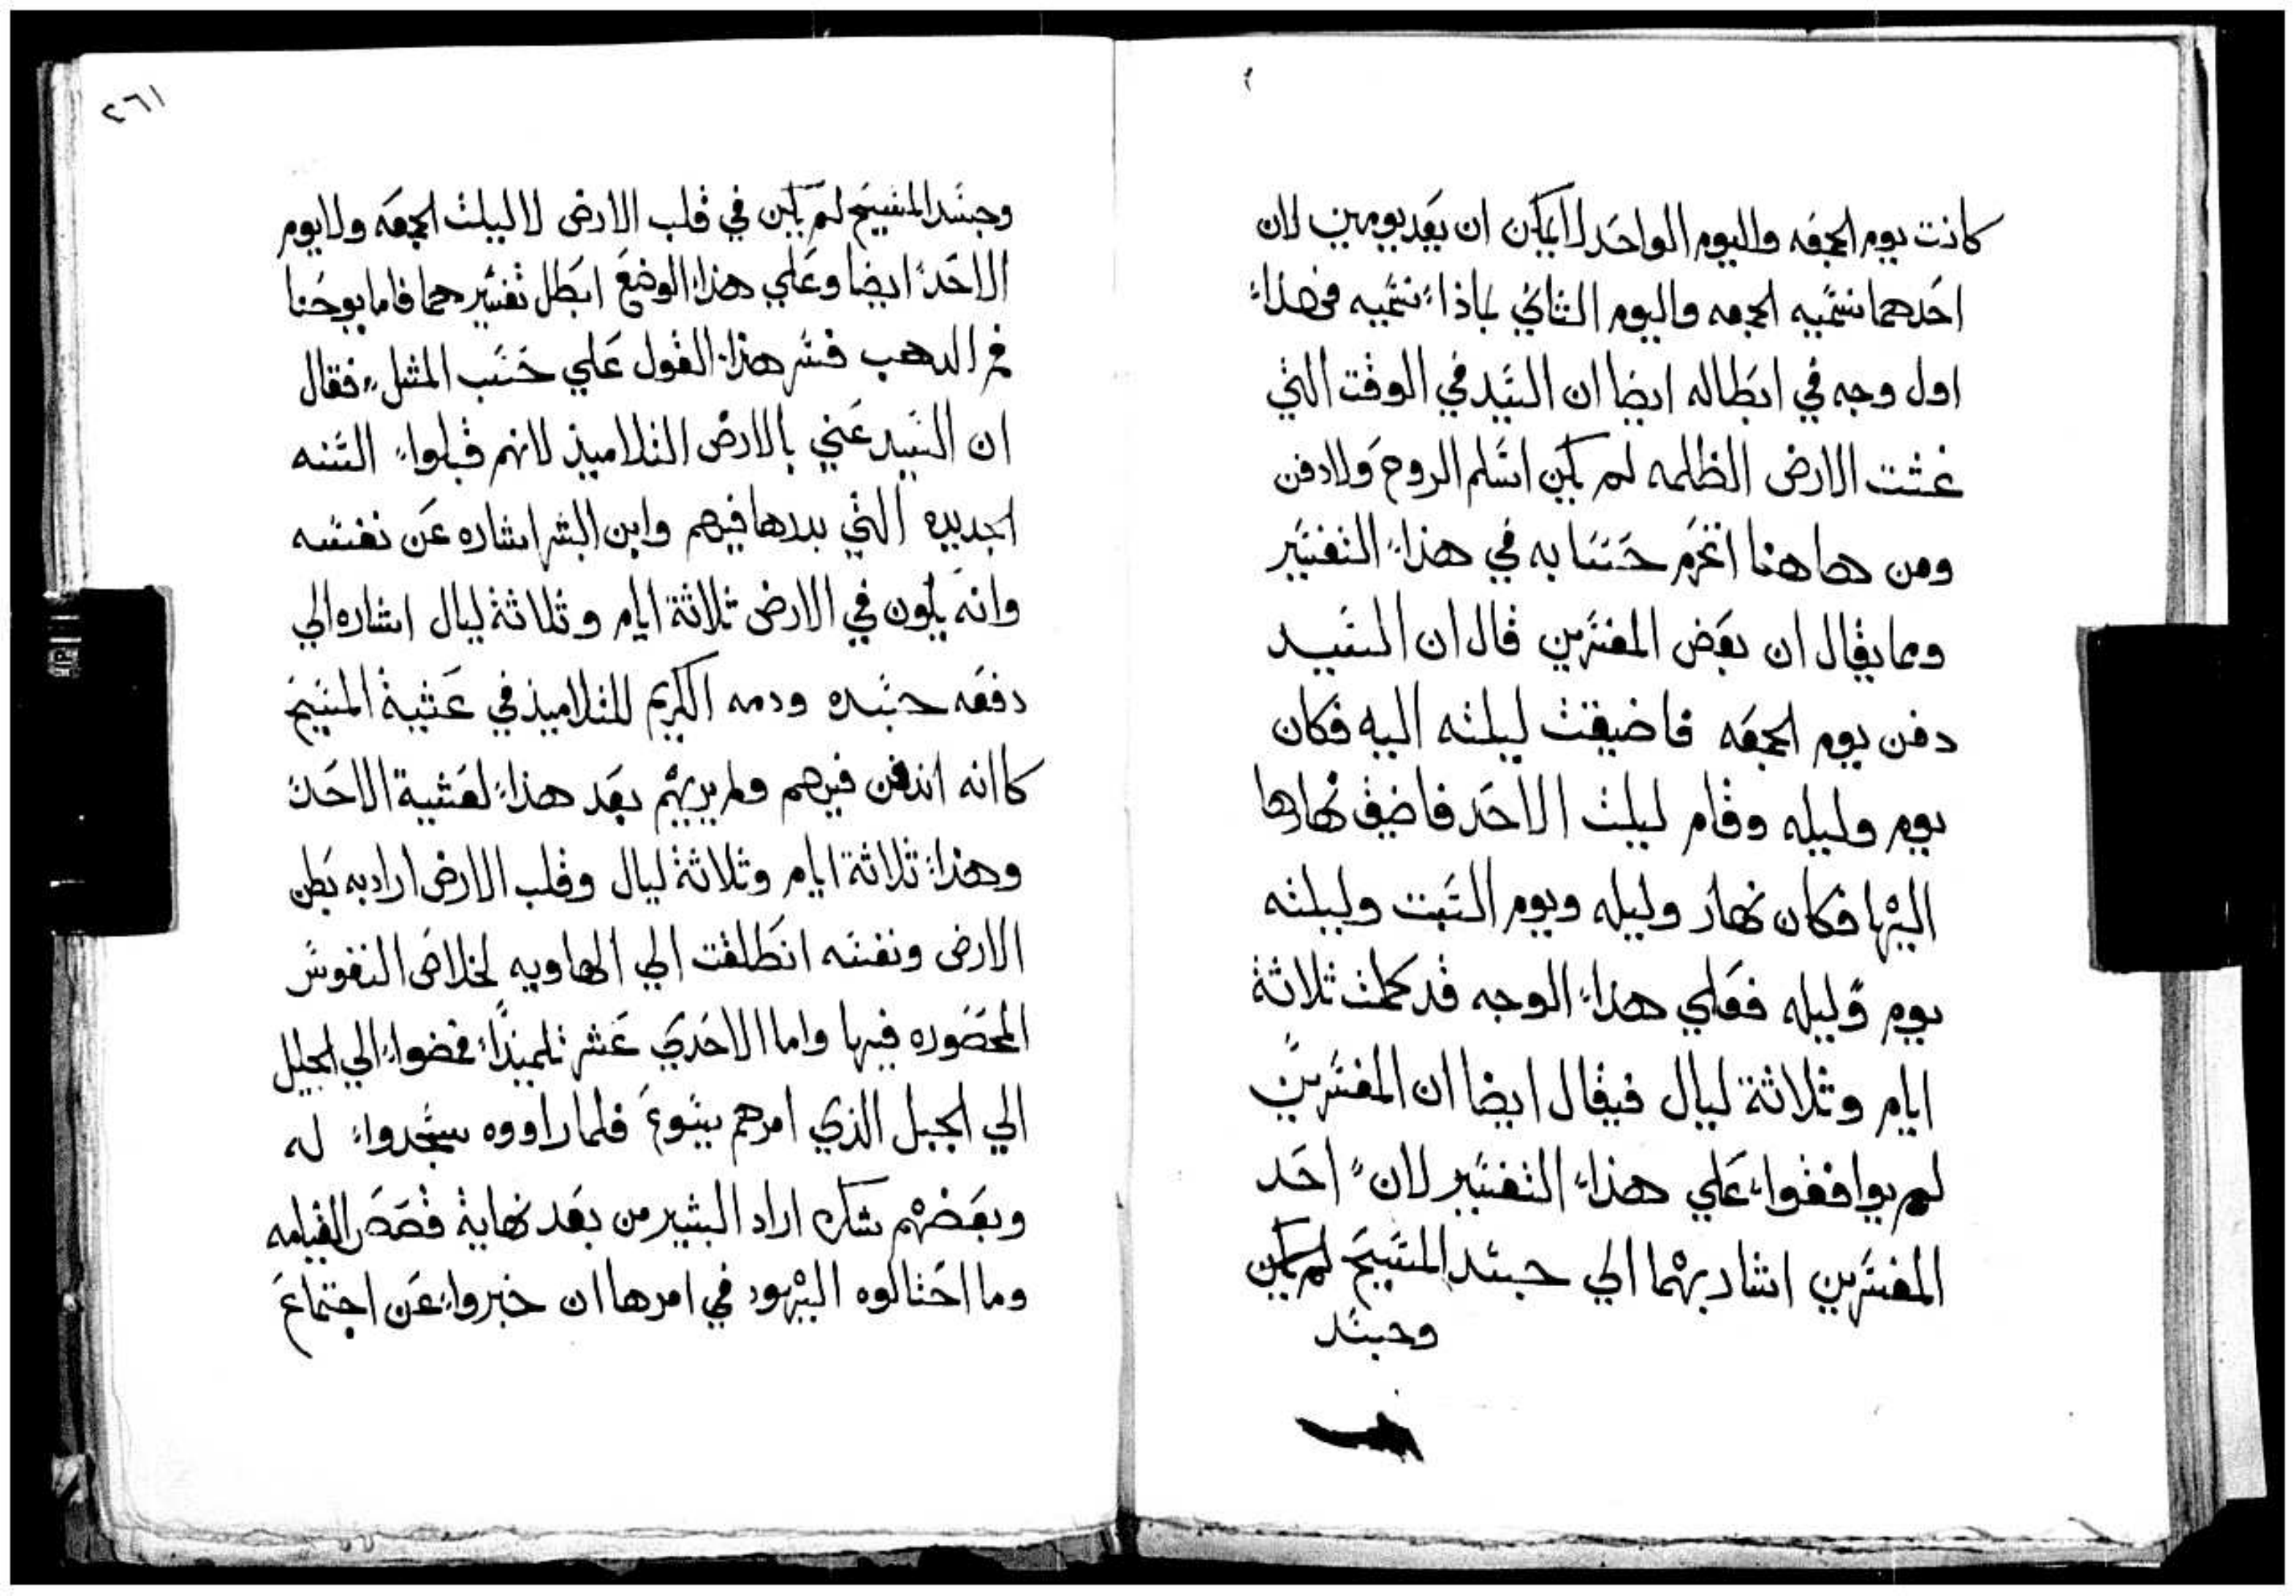 كانت يوم الجمعه واليوم الواحد لا يمكن ان يعد يومين لان
احدهما نسميه الجمعه واليوم الثاني بماذا نسميه فهذا
اول وجه في ابطاله ايضا ان السيد في الوقت التي
غشت الارض الظلمه لم يكن اسلم الروح ولا دفن
ومن هاهنا انخرم حسابه في هذا التفسير
ومما يقال ان بعض المفسرين قال ان السيد
دفن يوم الجمعه فاضيفت ليلته اليه فكان
يوم وليله وقام ليلت الاحد فاضيف نهارها
اليها فكان نهار وليله ويوم السبت وليلته
يوم وليله فعلي هذا الوجه قد كملت ثلاثة
ايام وثلاثة ليال فيقال ايضا ان المفسرين
لم يوافقوا علي هذا التفسير لان احد
المفسرين اشار بهما الي جسد المسيح لم يكن
وجسد
٢٦١
وجسد المسيح لم يكن في قلب الارض لا ليلت الجمعه ولا يوم
الاحد ايضا وعلي هذا الوضع ابطل تفسيرهما فاما يوحنا
فم الدهب فسر هذا القول علي حسب المثل فقال
ان السيد عني بالارض التلاميذ لانهم قبلوا السنه
الجديده التي بدرها فيهم وابن البشر اشاره عن نفسه
وانه يكون في الارض ثلاثة ايام وثلاثة ليال اشاره الي
دفعه جسده ودمه الكريم للتلاميذ في عشية المسيح
كاانه اندفن فيهم ولم يريهم بعد هذا لعشية الاحد
وهذا ثلاثة ايام وثلاثة ليال وقلب الارض اراد به بطن
الارض ونفسه انطلقت الي الهاويه لخلاص النفوس
المحصوره فيها واما الاحدي عشر تلميذا فمضوا الي الجليل
الي الجبل الذي امرهم يسوع فلما راووه سجدوا له
وبعضهم شك اراد البشير من بعد نهاية قصص القيامه
وما احتالوه اليهود في امرها ان خبروا عن اجتماع